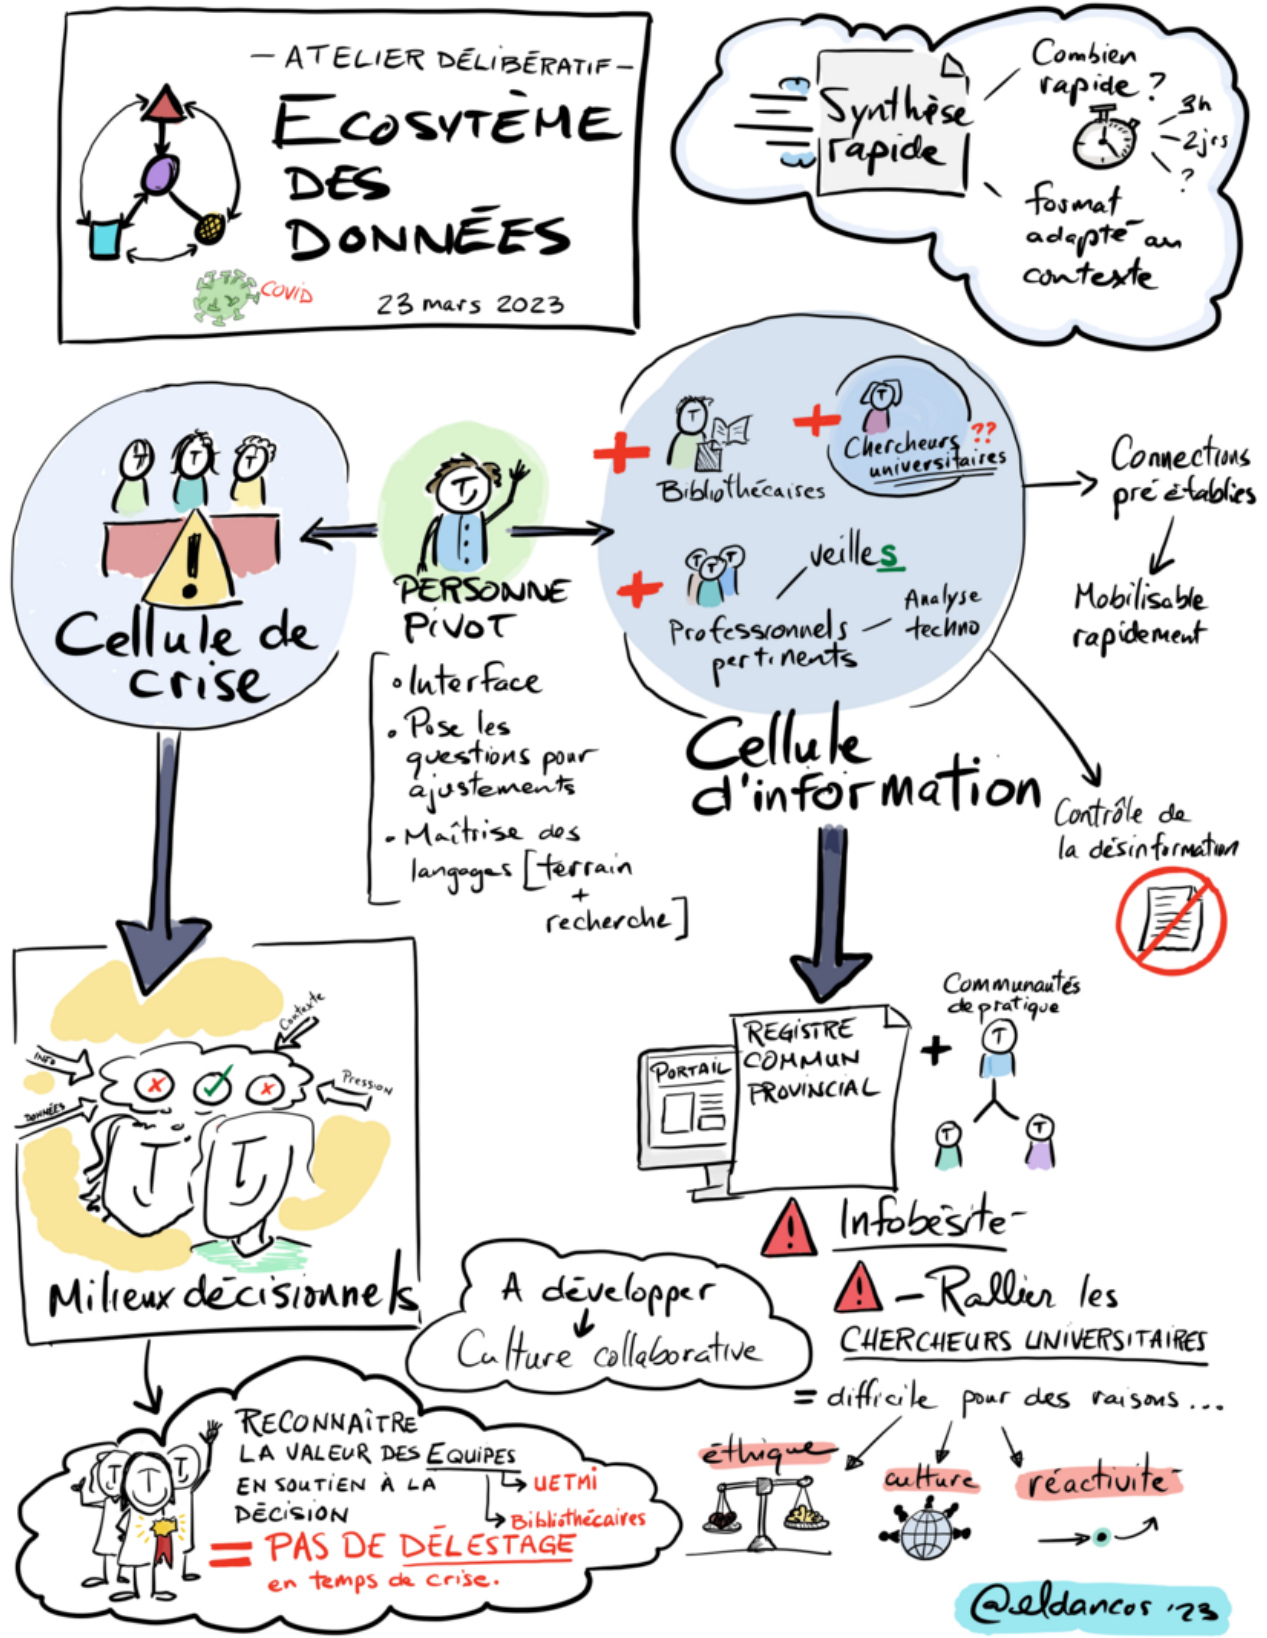 - ATELIER DÉLIBÉRATIF -
ECOSYTÈME
DES
DONNÉES
COVID
23 mars 2023
Synthèse
rapide
Combien
rapide ?
3h
2jrs
?
format
adapté au
contexte
Cellule de
crise
PERSONNE
PIVOT
• Interface
• Pose les
questions pour
ajustements
• Maîtrise des
langages [terrain
+
recherche]
+
Bibliothécaires
+
Chercheurs ??
universitaires
+
Professionnels
pertinents
veilles
Analyse
techno
Cellule
d'information
Connections
pré établies
Mobilisable
rapidement
Contrôle de
la désinformation
Contexte
INFO
Pression
DONNÉES
Milieux décisionnels
PORTAIL
REGISTRE
COMMUN
PROVINCIAL
+
Communautés
de pratique
Infobésité
- Rallier les
CHERCHEURS UNIVERSITAIRES
= difficile pour des raisons...
éthique
culture
réactivité
A développer
Culture collaborative
RECONNAÎTRE
LA VALEUR DES EQUIPES
EN SOUTIEN À LA
DÉCISION
UETMI
Bibliothécaires
= PAS DE DÉLESTAGE
en temps de crise.
@eldancos '23